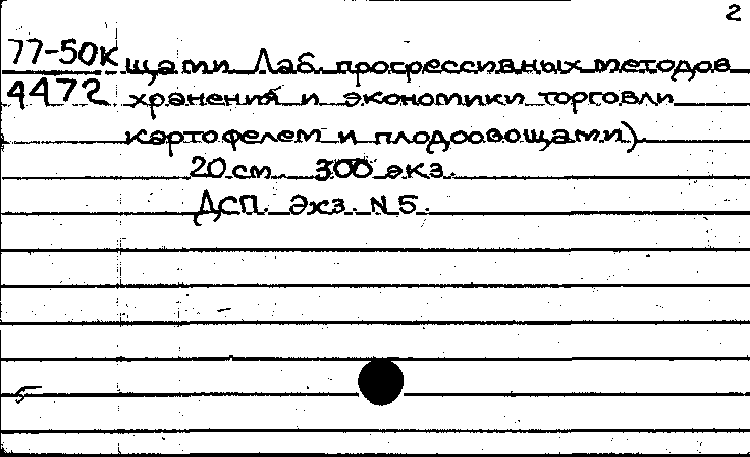 2
77-50к щами Лаб. прогрессивных методов
4472 хранения и экономики торговли
картофелем и плодоовощами).
20 см. 300 экз.
ДСП. Экз. N 5.